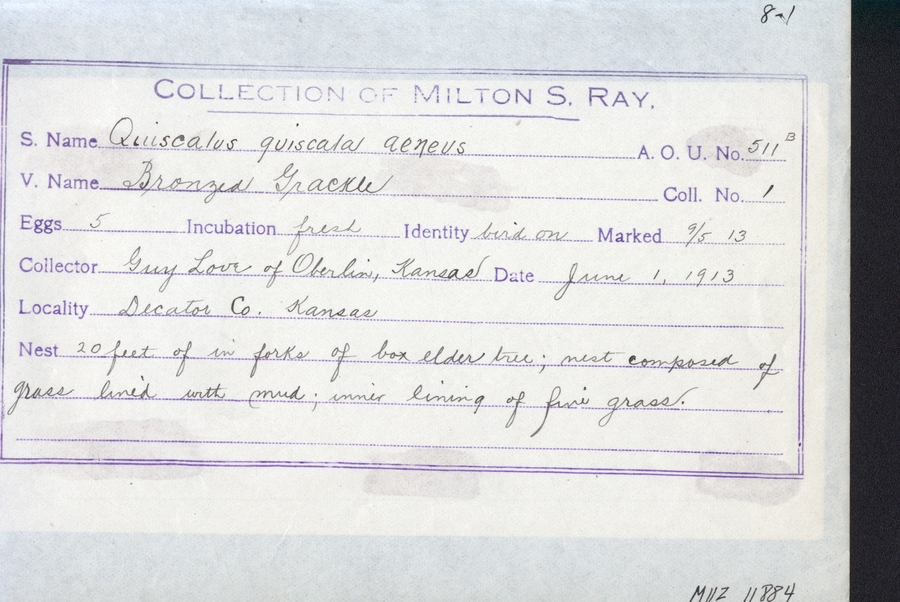 8-1
COLLECTION OF MILTON S. RAY.
S. Name Quiscalus quiscala aeneus A. O. U. No. 511 B
V. Name Bronzed Grackle Coll. No. 1
Eggs 5 Incubation fresh Identity bird on Marked 9/5 13
Collector Guy Love of Oberlin, Kansas Date June 1, 1913
Locality Decator Co. Kansas
Nest 20 feet of in forks of box elder tree; nest composed of
grass lined with mud; inner lining of fine grass.
MVZ 11884